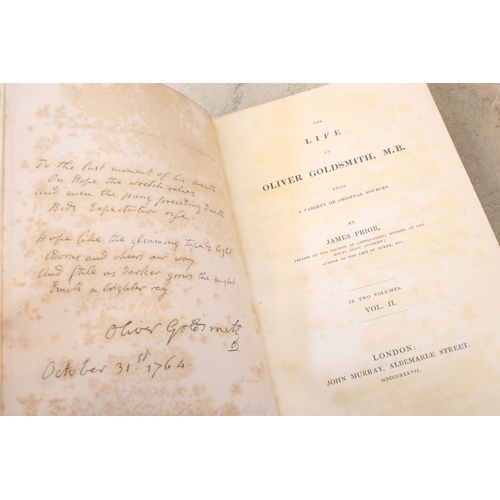 To the last moment of his breath
On Hope the wretch relies
And even the pang preceding Death
Bids Expectation rise.
Hope like the gleaming taper's light
Adorns and cheers our way
And still as darker grows the night
Emits a brighter ray
Oliver Goldsmith
October 31st 1764
THE
LIFE
OF
OLIVER GOLDSMITH, M.B.
FROM
A VARIETY OF ORIGINAL SOURCES.
BY
JAMES PRIOR,
FELLOW OF THE SOCIETY OF ANTIQUARIES; MEMBER OF THE
ROYAL IRISH ACADEMY;
AUTHOR OF THE LIFE OF BURKE, ETC.
IN TWO VOLUMES.
VOL. II.
LONDON:
JOHN MURRAY, ALBEMARLE STREET.
MDCCCXXXVII.